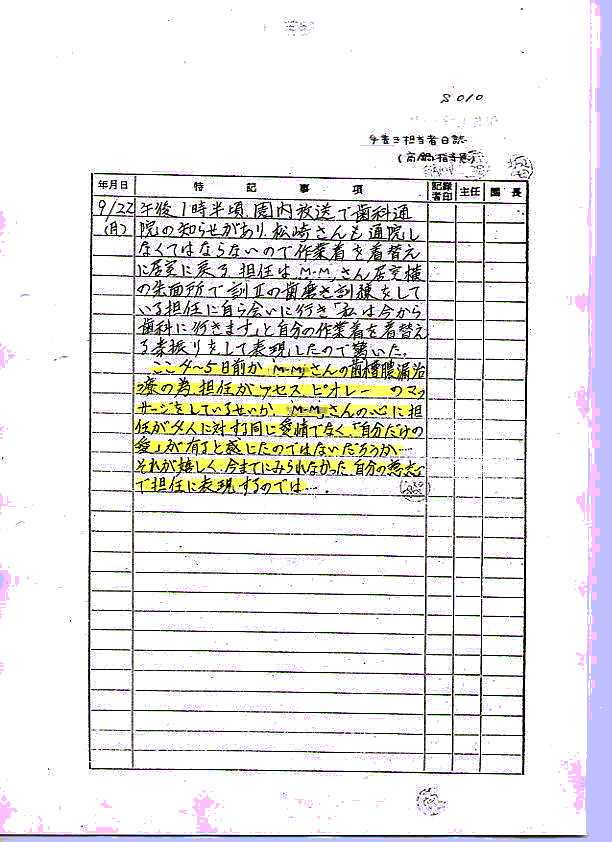 8010
担当者日誌
年月日 特記事項 記録者印 主任 園長
9/22 午後1時半頃、園内放送で歯科通
(月) 院の知らせがあり、松崎さんも通院し
なくてはならないので作業着を着替え
に居室に戻る。担任は、M・M、さん居室横
の洗面所で訓Ⅱの歯磨き訓練をして
いる担任に自ら会いに行き「私は今から
歯科に行きます」と自分の作業着を着替え
る素振りをして表現したので驚いた。
ここ4〜5日前から M-M さんの歯槽膿漏治
療の為、担任がアセス、ピオレーのマッ
サージをしているせいか、M-M、さんの心に担
任が夕人に対す同じ愛情でなく、「自分だけの
愛」が有ると感じたのではないだろうか…
それが嬉しく、今までにみられなかった、自分の意志
で担任に表現するのでは…。